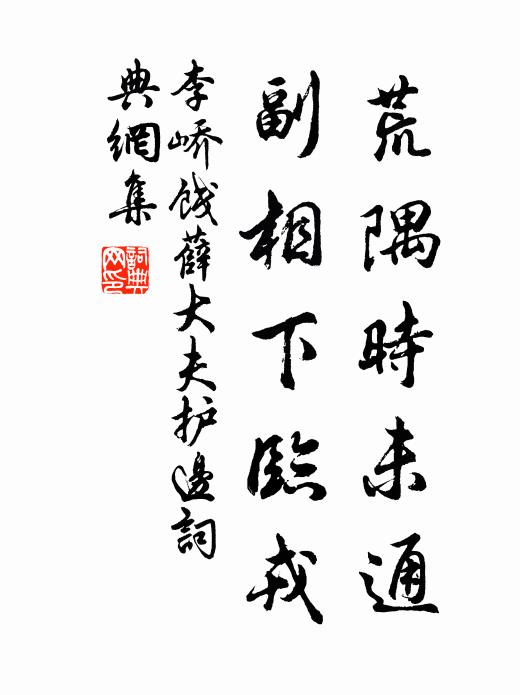 荒隅時未通
副相下臨戎
李嶠餞薛大夫护邊詞
典網集
詞典網印